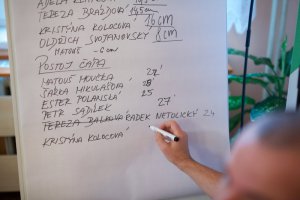 TEREZA BRAŽDOVÁ
KRISTÝNA KOLOCOVÁ 16cm
OLDŘICH SVOJANOVSKÝ 8cm
MATOUŠ -6cm
POSTOJ ČÁPA
MATOUŠ MOUČKA 22'
ŠÁRKA MIKULÁŠOVÁ
ESTER POLANSKÁ 25
PETR SADÍLEK 27'
TEREZA RADEK NETOLICKÝ 24
KRISTÝNA KOLOCOVÁ